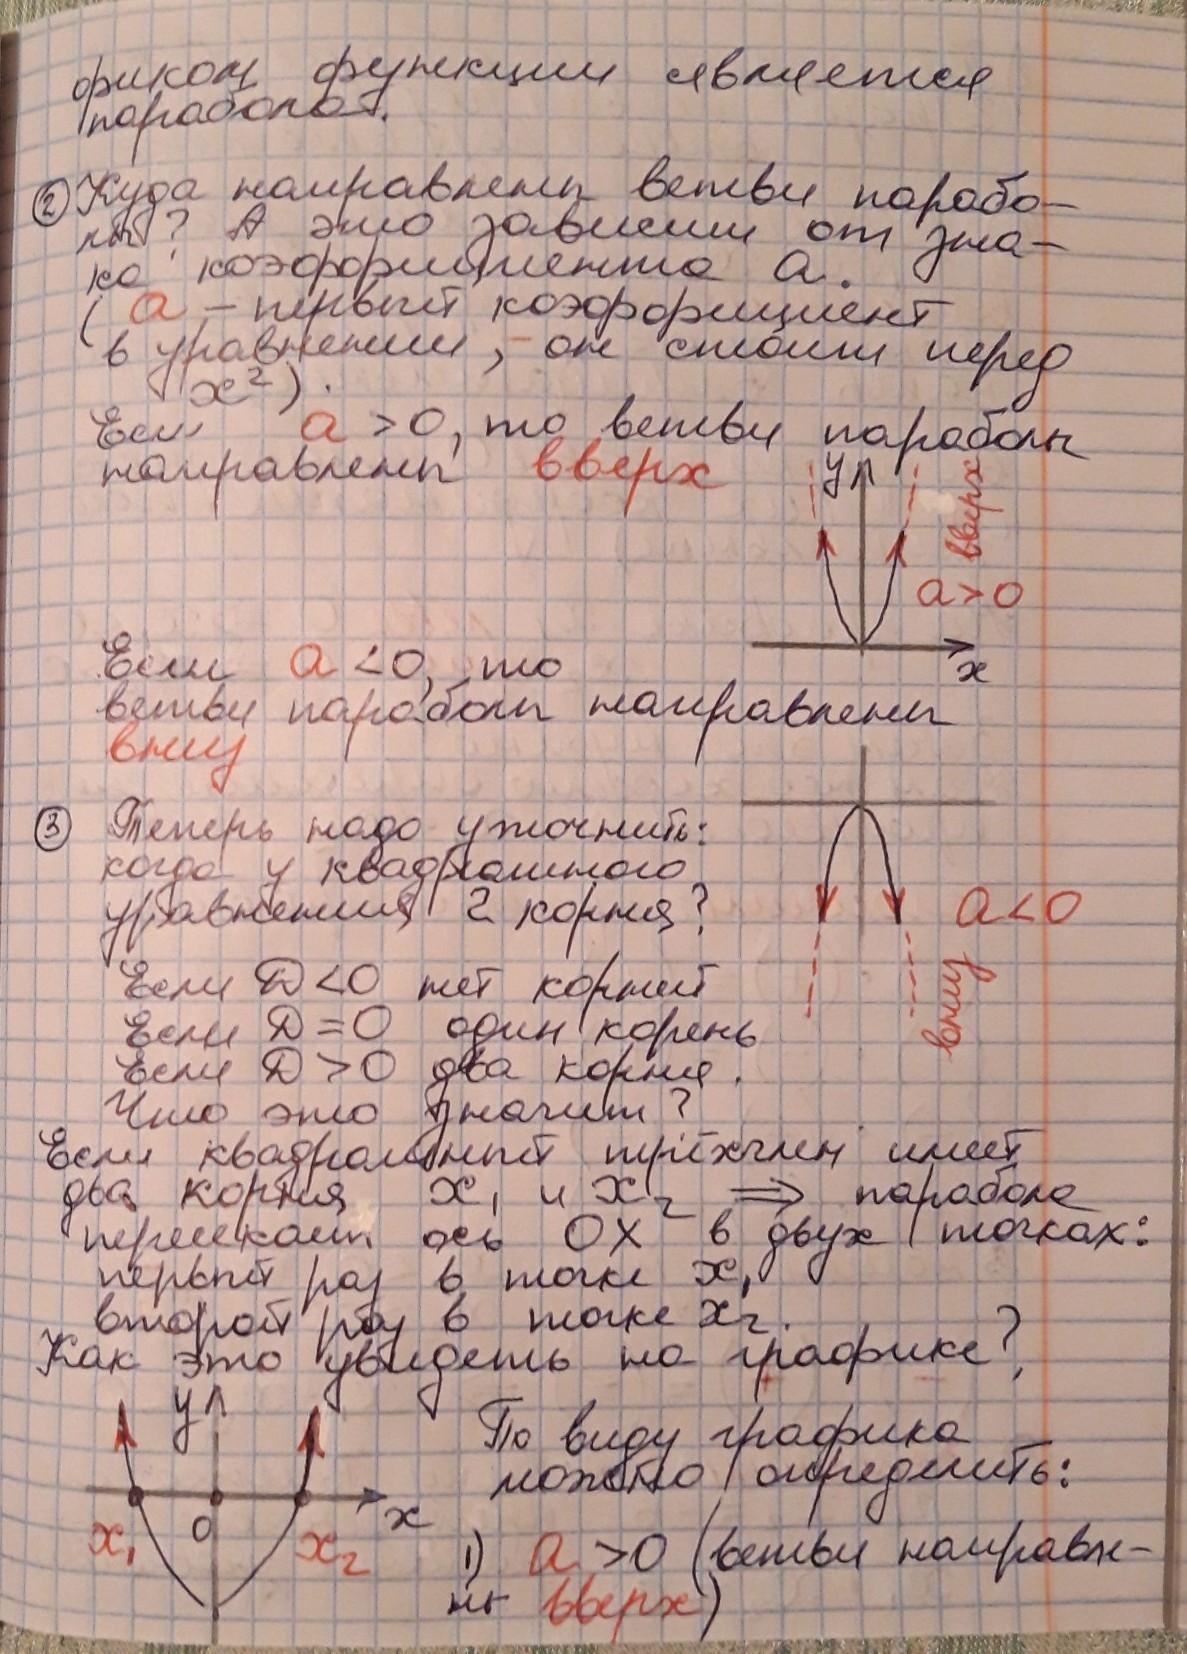 фиком функции является
параболой.
② Куда направлены ветви парабо-
лы? А это зависит от зна-
ка коэффициента а.
( а – первый коэффициент
в уравнении, – он стоит перед
x²).
Если а > 0, то ветви параболы
направлены вверх
y
вверх
a > 0
x
Если а < 0, то
ветви параболы направлены
вниз
③ Теперь надо уточнить:
когда у квадратного
уравнения 2 корня?
a < 0
вниз
Если D < 0 нет корней
Если D = 0 один корень
Если D > 0 два корня.
Что это значит?
Если квадратный трёхчлен имеет
два корня x₁ и x₂ ⇒ парабола
пересекает ось OX в двух точках:
первый раз в точке x₁
второй раз в точке x₂.
Как это увидеть на графике?
y
x
0
x₁
x₂
По виду графика
можно определить:
1) а > 0 (ветви направле-
ны вверх)